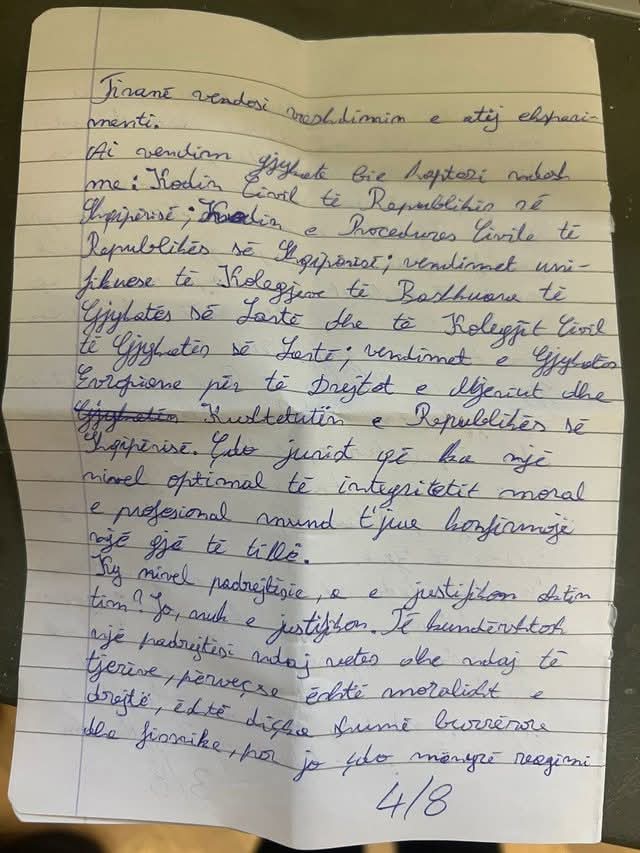 Tiranë vendosi rrëshqimin e atij ekspari-
menti.
Ai vendim gjykate bie haptazi ndesh
me: Kodin Civil të Republikës së
Shqipërisë; Kodin e Procedures Civile të
Republikës së Shqipërisë; vendimet uni-
fikuese të Kolegjeve të Bashkuara të
Gjykatës së Lartë dhe të Kolegjit Civil
të Gjykatës së Lartë; vendimet e Gjykatës
Evropiane për të Drejtat e Njeriut dhe
Kushtetutën e Republikës së
Shqipërisë. Çdo jurist që ka një
nivel optimal të integritetit moral
e profesional mund t'jua konfirmojë
një gjë të tillë.
Ky nivel padrejtësie, a e justifikon aktin
tim? Jo, nuk e justifikon. Të kundërshtosh
një padrejtësi ndaj vetes dhe ndaj të
tjerëve, përveçse është moralisht e
drejtë, është diçka shumë burrërore
dhe fisnike, por jo çdo mënyrë reagimi
4/8